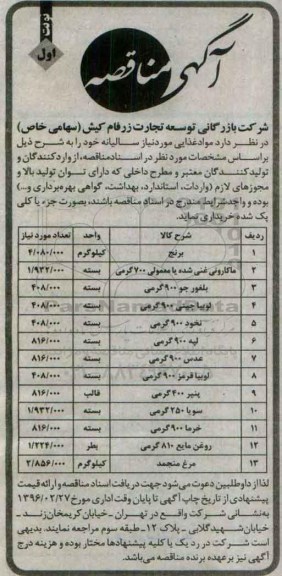 نوبت
اول
آگهی مناقصه
شرکت بازرگانی توسعه تجارت زرفام کیش (سهامی خاص)
در نظر دارد مواد غذایی مورد نیاز سالیانه خود را به شرح ذیل
براساس مشخصات مورد نظر در اسناد مناقصه، از وارد کنندگان و
تولید کنندگان معتبر و مطرح داخلی که دارای توان تولید بالا و
مجوزهای لازم (واردات، استاندارد، بهداشت، گواهی بهره‌برداری و...)
بوده و واجد شرایط مندرج در اسناد مناقصه باشند، بصورت جزء یا کلی
یک شده خریداری نماید.
ردیف شرح کالا واحد تعداد مورد نیاز
۱ برنج کیلوگرم ۴/۰۸۰/۰۰۰
۲ ماکارونی غنی شده یا معمولی ۷۰۰ گرمی بسته ۱/۹۳۲/۰۰۰
۳ بلغور جو ۹۰۰ گرمی بسته ۴۰۸/۰۰۰
۴ لوبیا چیتی ۹۰۰ گرمی بسته ۴۰۸/۰۰۰
۵ نخود ۹۰۰ گرمی بسته ۴۰۸/۰۰۰
۶ لپه ۹۰۰ گرمی بسته ۸۱۶/۰۰۰
۷ عدس ۹۰۰ گرمی بسته ۸۱۶/۰۰۰
۸ لوبیا قرمز ۹۰۰ گرمی بسته ۴۰۸/۰۰۰
۹ پنیر ۴۰۰ گرمی قالب ۸۱۶/۰۰۰
۱۰ سویا ۲۵۰ گرمی بسته ۱/۹۳۲/۰۰۰
۱۱ خرما ۹۰۰ گرمی بسته ۸۱۶/۰۰۰
۱۲ روغن مایع ۸۱۰ گرمی بطر ۱/۲۲۴/۰۰۰
۱۳ مرغ منجمد کیلوگرم ۲/۸۵۶/۰۰۰
لذا از داوطلبین دعوت می‌شود جهت دریافت اسناد مناقصه و ارائه قیمت
پیشنهادی از تاریخ چاپ آگهی تا پایان وقت اداری مورخ ۱۳۹۶/۰۲/۲۷
به نشانی شرکت واقع در تهران - خیابان کریمخان زند -
خیابان شهید گلابی - پلاک ۱۲ - طبقه سوم مراجعه نمایند. بدیهی
است شرکت در رد یک یا کلیه پیشنهادها مختار بوده و هزینه درج
آگهی نیز بر عهده برنده مناقصه می‌باشد.